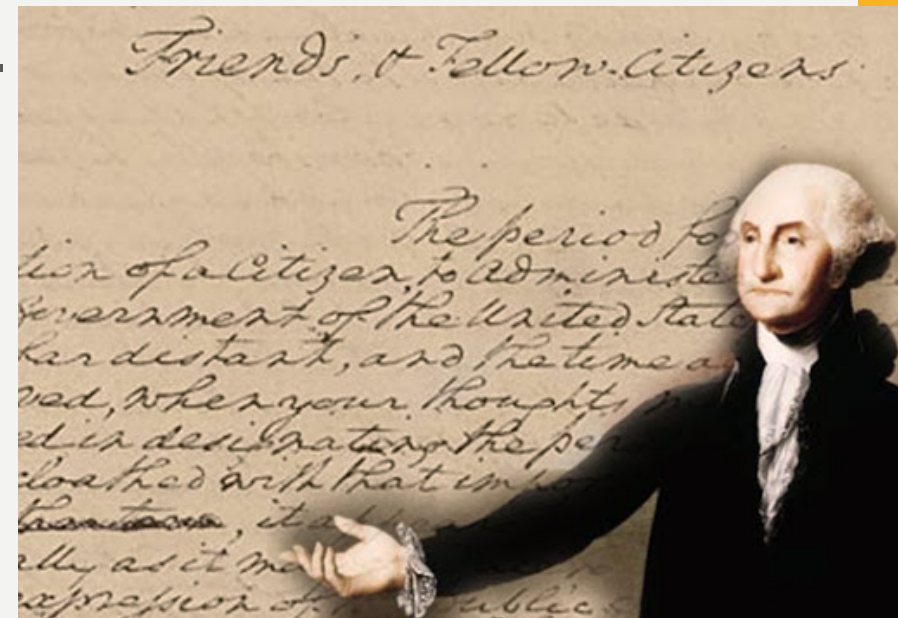 Friends, & Fellow-Citizens
The period fo
tion of a Citizen, to administe
Government of the United State
har distant, and the time a
ved, when your thoughts m
ed in designating the per
cloathed with that impor
it appea
ally as it ma
expression of public